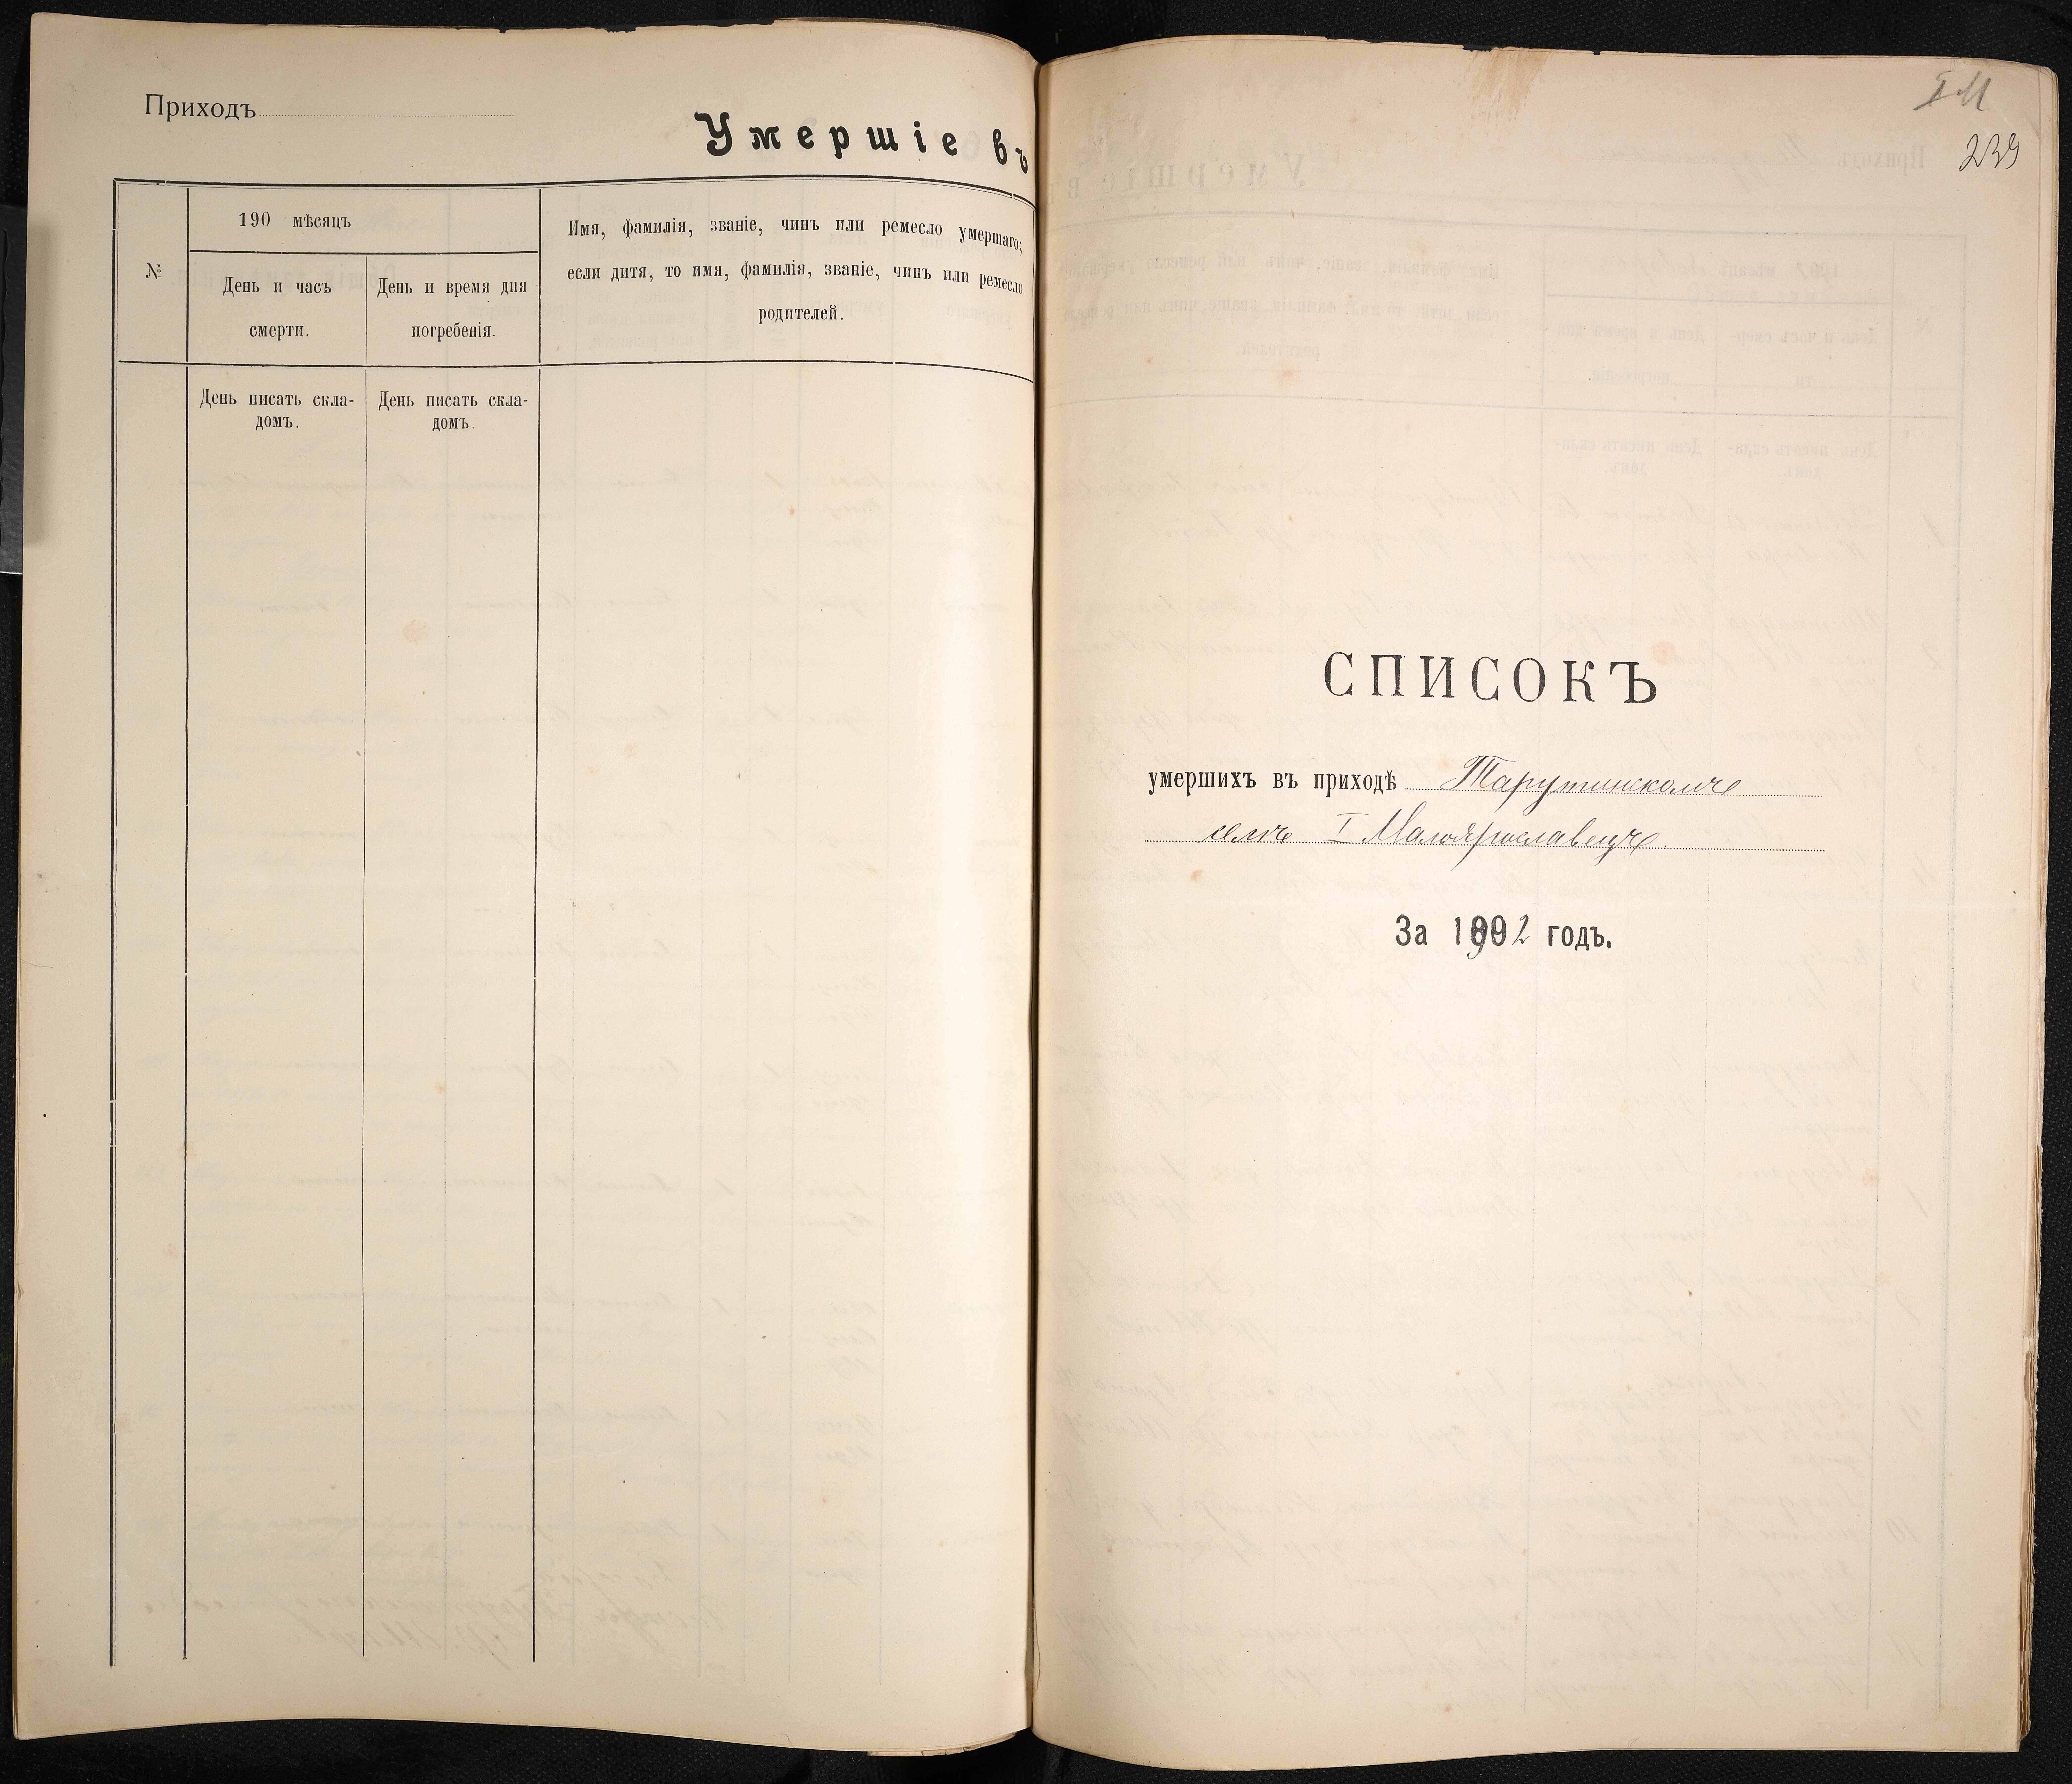 Приходъ
Умершіе въ
№
190 мѣсяцъ
День и часъ
смерти.
День и время дня
погребенія.
Имя, фамилія, званіе, чинъ или ремесло умершаго;
если дитя, то имя, фамилія, званіе, чинъ или ремесло
родителей.
День писать скла-
домъ.
День писать скла-
домъ.
I M
239
СПИСОКЪ
умершихъ въ приходѣ Тарутинскомъ
селѣ I Малоярославецѣ.
За 1902 годъ.